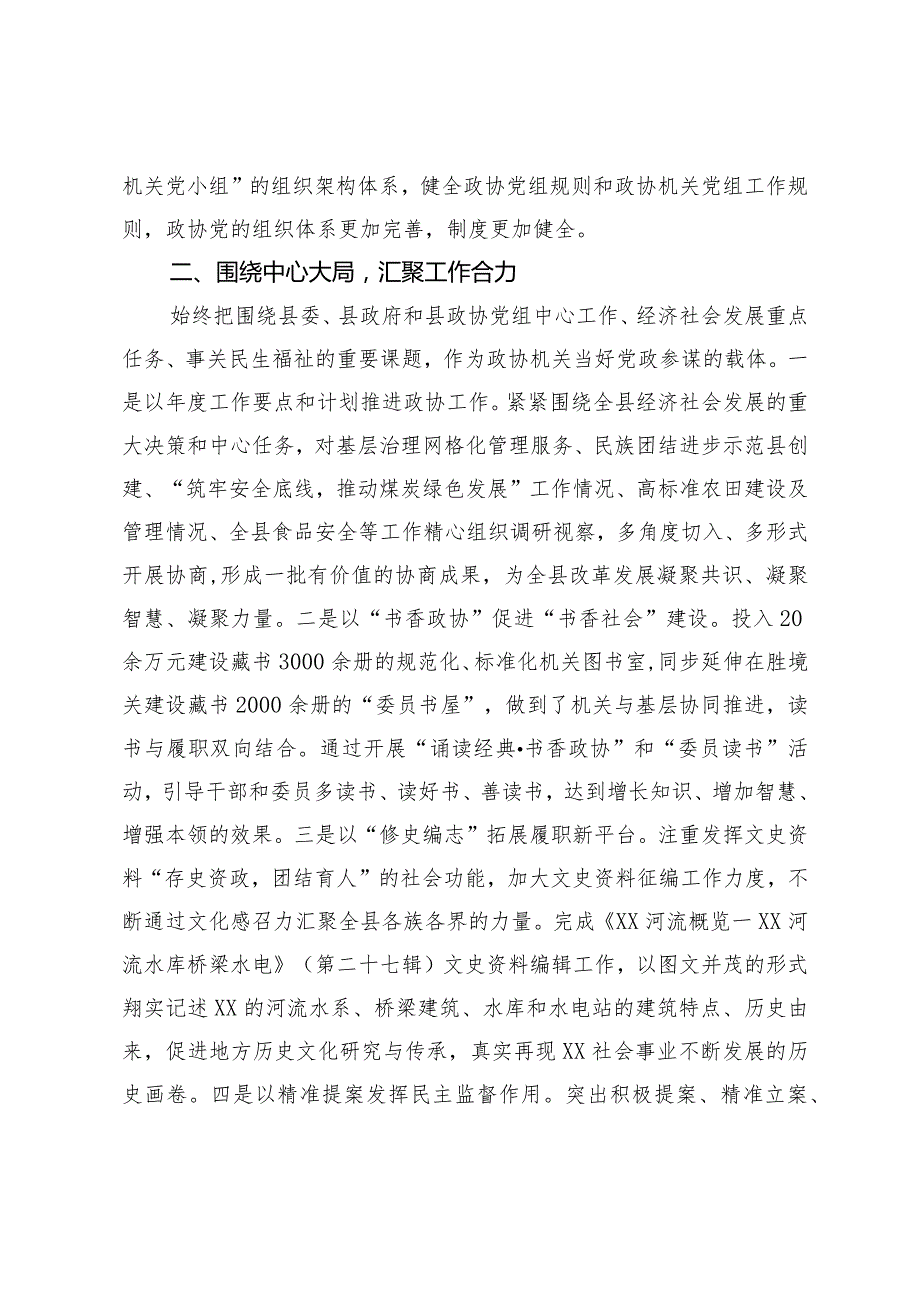 机关党小组”的组织架构体系，健全政协党组规则和政协机关党组工作规
则，政协党的组织体系更加完善，制度更加健全。
二、围绕中心大局，汇聚工作合力
始终把围绕县委、县政府和县政协党组中心工作、经济社会发展重点
任务、事关民生福祉的重要课题，作为政协机关当好党政参谋的载体。一
是以年度工作要点和计划推进政协工作。紧紧围绕全县经济社会发展的重
大决策和中心任务，对基层治理网格化管理服务、民族团结进步示范县创
建、“筑牢安全底线，推动煤炭绿色发展”工作情况、高标准农田建设及
管理情况、全县食品安全等工作精心组织调研视察，多角度切入、多形式
开展协商,形成一批有价值的协商成果，为全县改革发展凝聚共识、凝聚
智慧、凝聚力量。二是以“书香政协”促进“书香社会”建设。投入 20
余万元建设藏书 3000 余册的规范化、标准化机关图书室,同步延伸在胜境
关建设藏书 2000 余册的“委员书屋”，做到了机关与基层协同推进，读
书与履职双向结合。通过开展“诵读经典•书香政协”和“委员读书”活
动，引导干部和委员多读书、读好书、善读书，达到增长知识、增加智慧、
增强本领的效果。三是以“修史编志”拓展履职新平台。注重发挥文史资
料“存史资政，团结育人”的社会功能，加大文史资料征编工作力度，不
断通过文化感召力汇聚全县各族各界的力量。完成《XX 河流概览一 XX 河
流水库桥梁水电》（第二十七辑）文史资料编辑工作，以图文并茂的形式
翔实记述 XX 的河流水系、桥梁建筑、水库和水电站的建筑特点、历史由
来，促进地方历史文化研究与传承，真实再现 XX 社会事业不断发展的历
史画卷。四是以精准提案发挥民主监督作用。突出积极提案、精准立案、